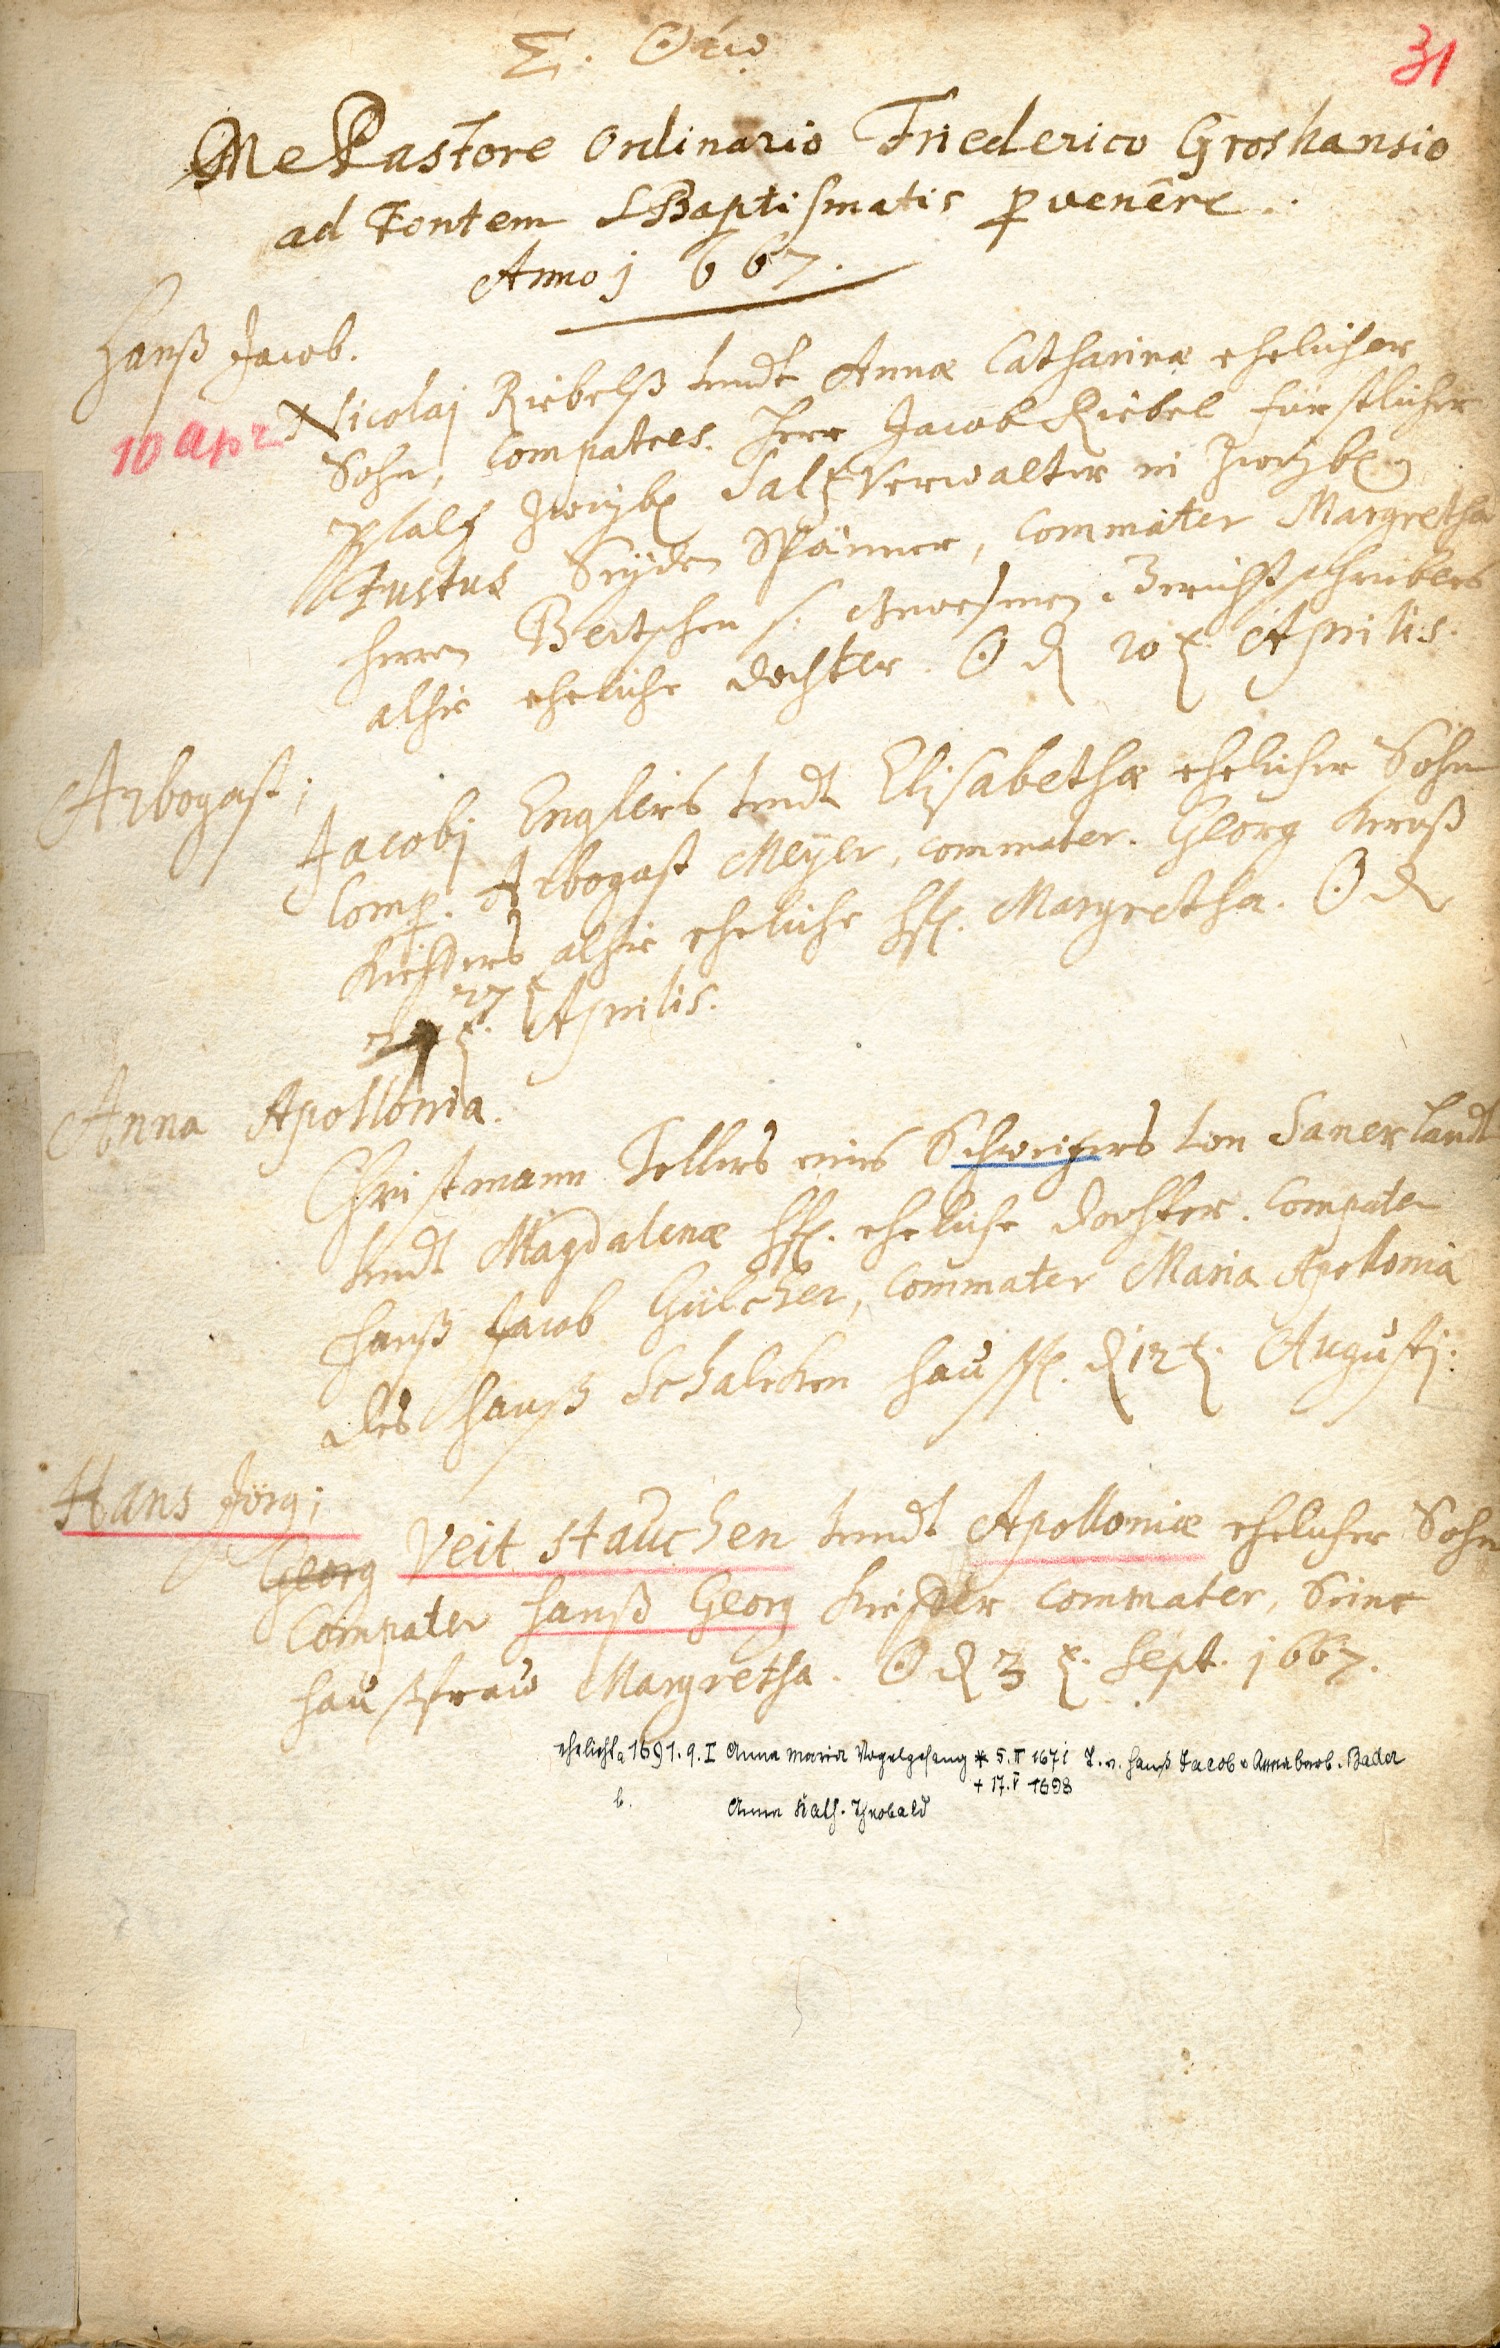 Σ. Θεῷ
31
Me Pastore Ordinario Friederico Groshansio
ad Fontem S Baptismatis pvenêre.
Anno 1667.
Hanß Jacob.
10 Apr
Nicolaj Riebelß undt Annæ Catharinæ ehelicher
Sohn, Compatres. Herr Jacob Riebel fürstlicher
Pfaltz Zweyb. Saltz Verwalter in Zweyb.
Justus Spänner, Commater Margretha
Herren Bertschen s. Gewesenen Grichtschreibers
alhie eheliche dochter. ☉ d 20 t. Aprilis.
Arbogast;
Jacobj Englers undt Elisabethæ ehelicher Sohn
Comp. Arbogast Meÿer, Commater. Georg
Kieffers alhie eheliche hfr. Margretha. ☉ d
27 t. Aprilis.
Anna Apollonia.
Christmann Tellers eines Schweitzers von Sanerlandt
undt Magdalenæ hfr. eheliche dochter. Compater
Hanß Jacob Gülcher, Commater Maria Apollonia
des Hanß Schalcken haußfr. d 12 t. Augustj.
Hans Jörg;
Georg Veit Hauchen undt Apolloniæ ehelicher Sohn
Compater Hanß Georg Kieffer Commater, Seine
haußfraw Margretha. ☉ d 3 t. Sept. 1667.
ehelicht a 1691.9.I Anna Maria Vogelgesang * 5.II 1671 T. v. Hanß Jacob u Anna Barb. Bader
+ 17.V 1698
b. Anna Kath. Theobald